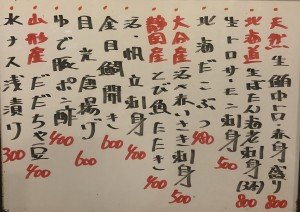 天然生鮪中口刺身盛り 800
北海道生ぼたん海老刺身(3本) 800
生トロサーモン刺身 500
北海だこぶつ 480
大分産活べ赤いさき刺身 500
静岡産とび魚たたき 400
活・帆立刺身 400
金目鯛開き 600
目光唐揚げ 600
ゆで豚ポン酢 400
山形産だだちゃ豆 400
水ナス浅漬り 300